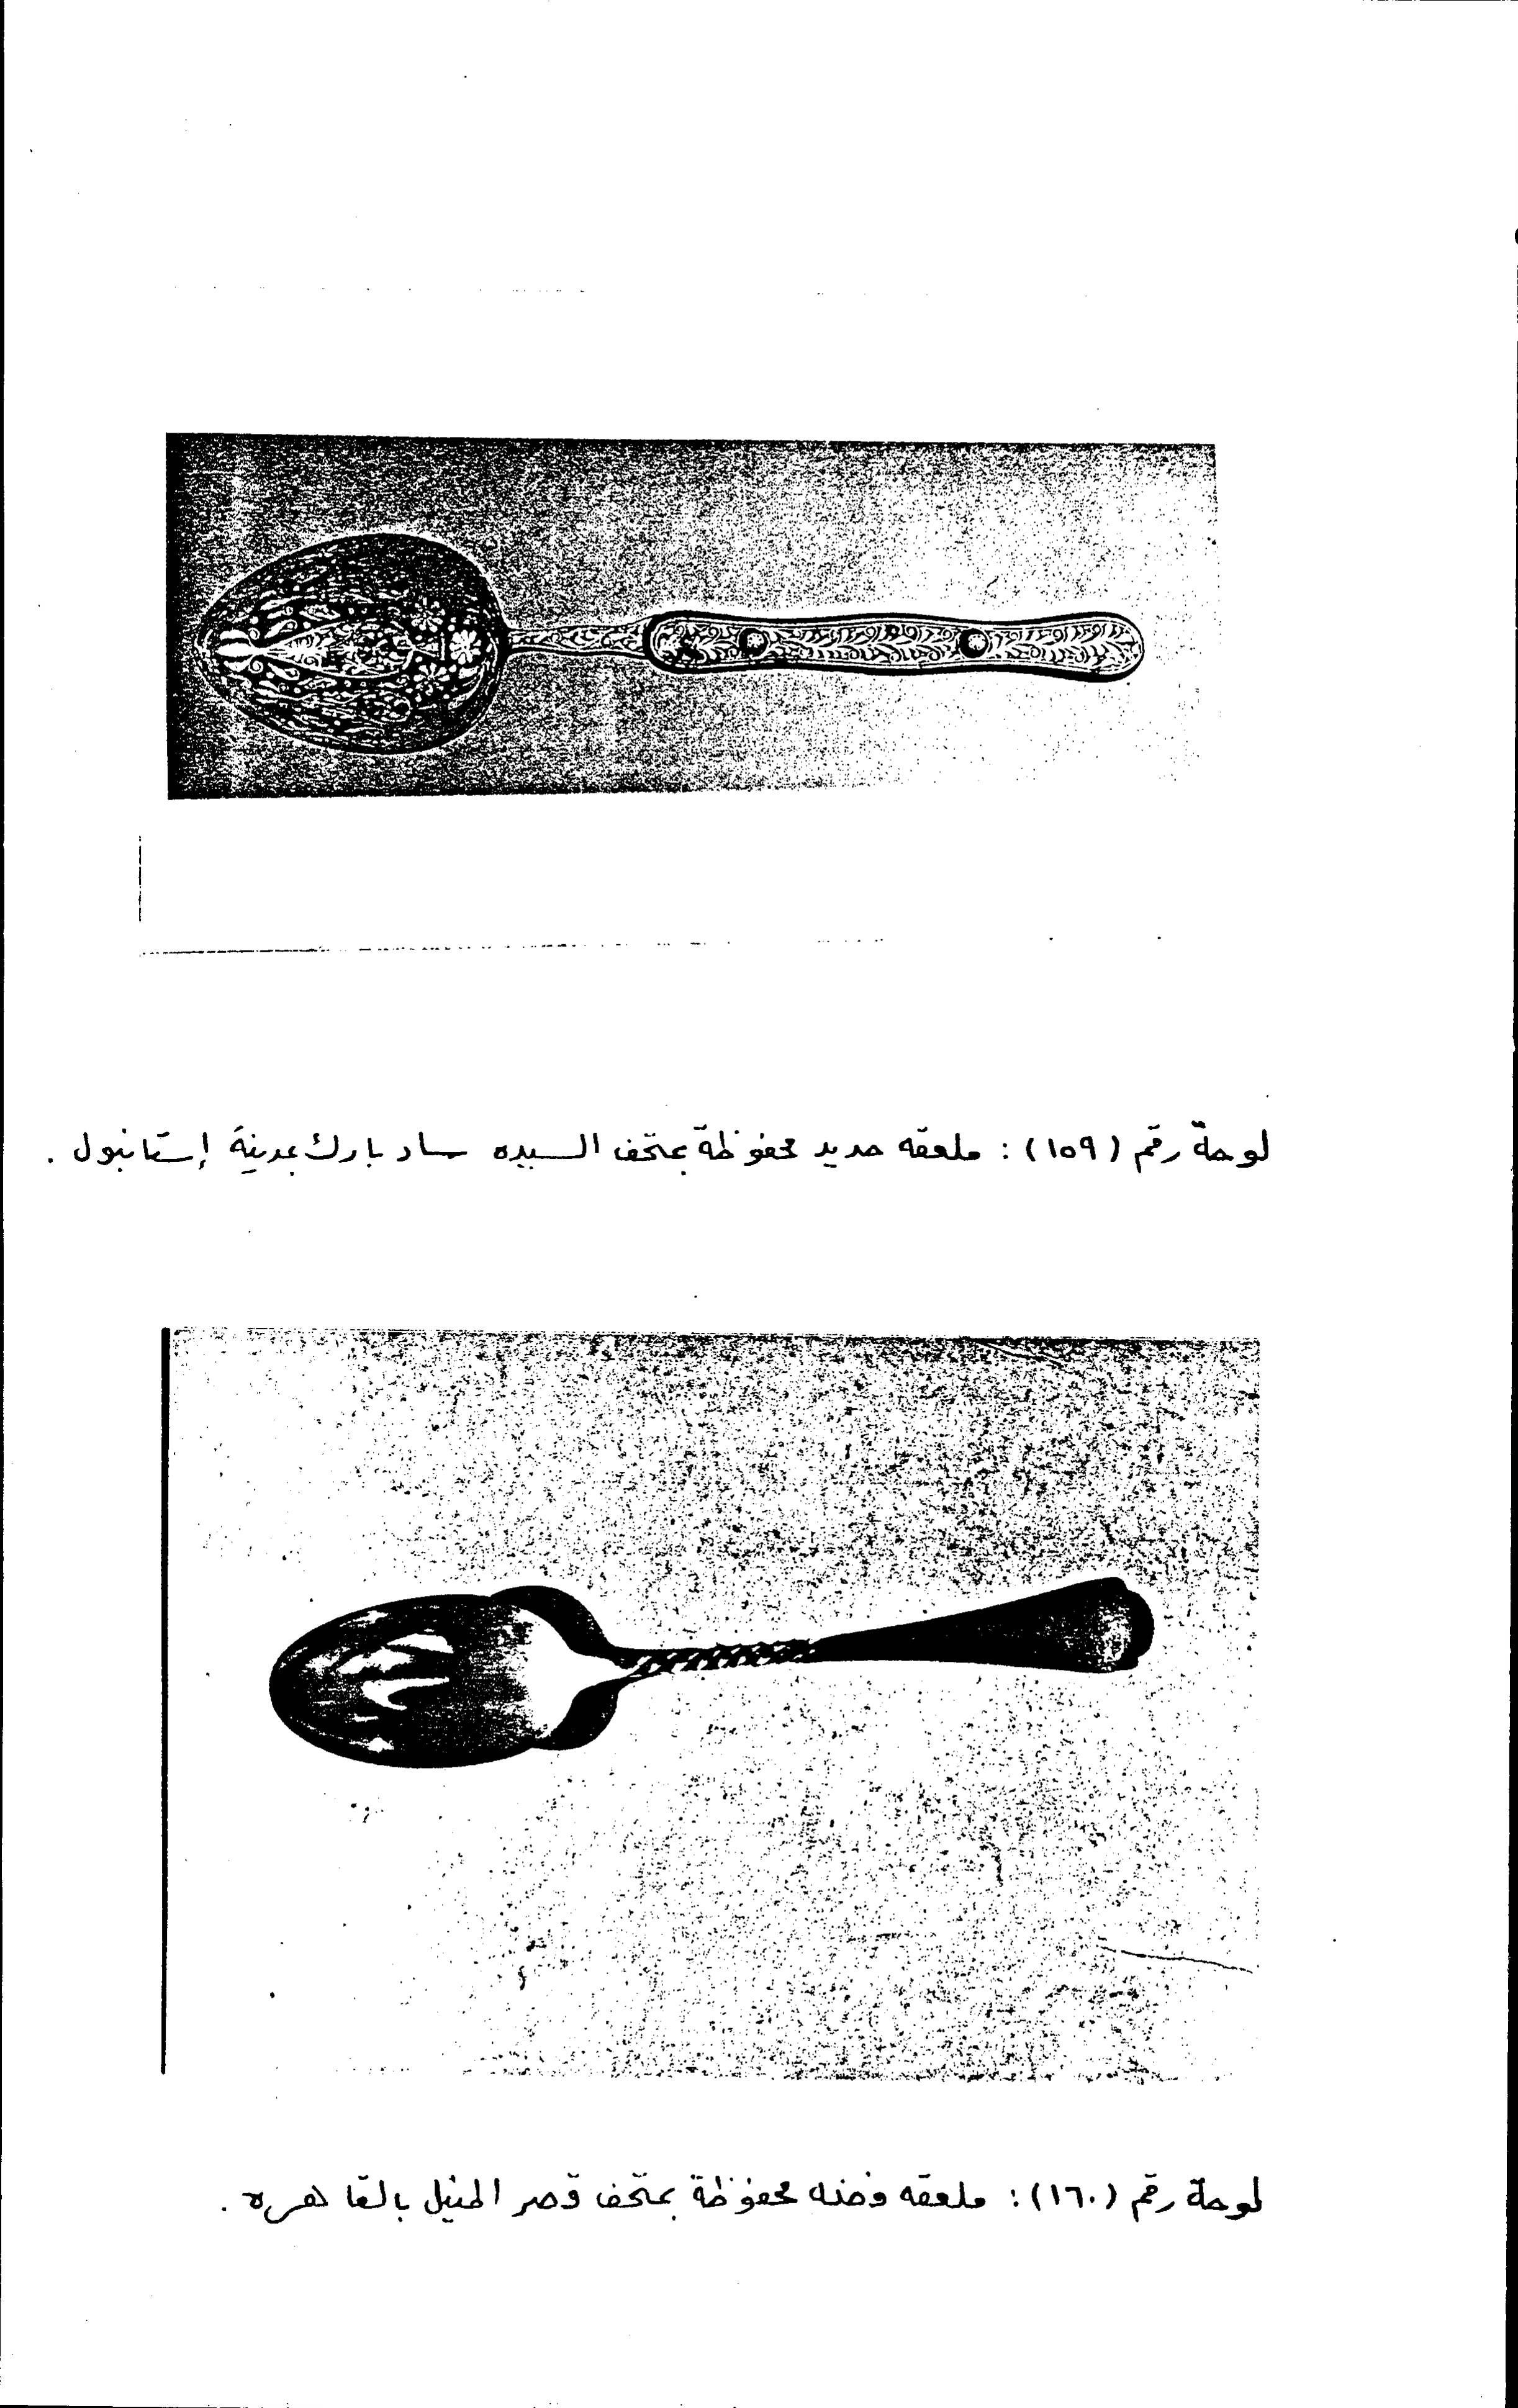 لوحة رقم (١٥٩) : ملعقه حديد محفوظة بمتحف السيده ساد بارك بمدينة إستانبول .
لوحة رقم (١٦٠) : ملعقه فضه محفوظة بمتحف قصر المنيل بالقاهره .